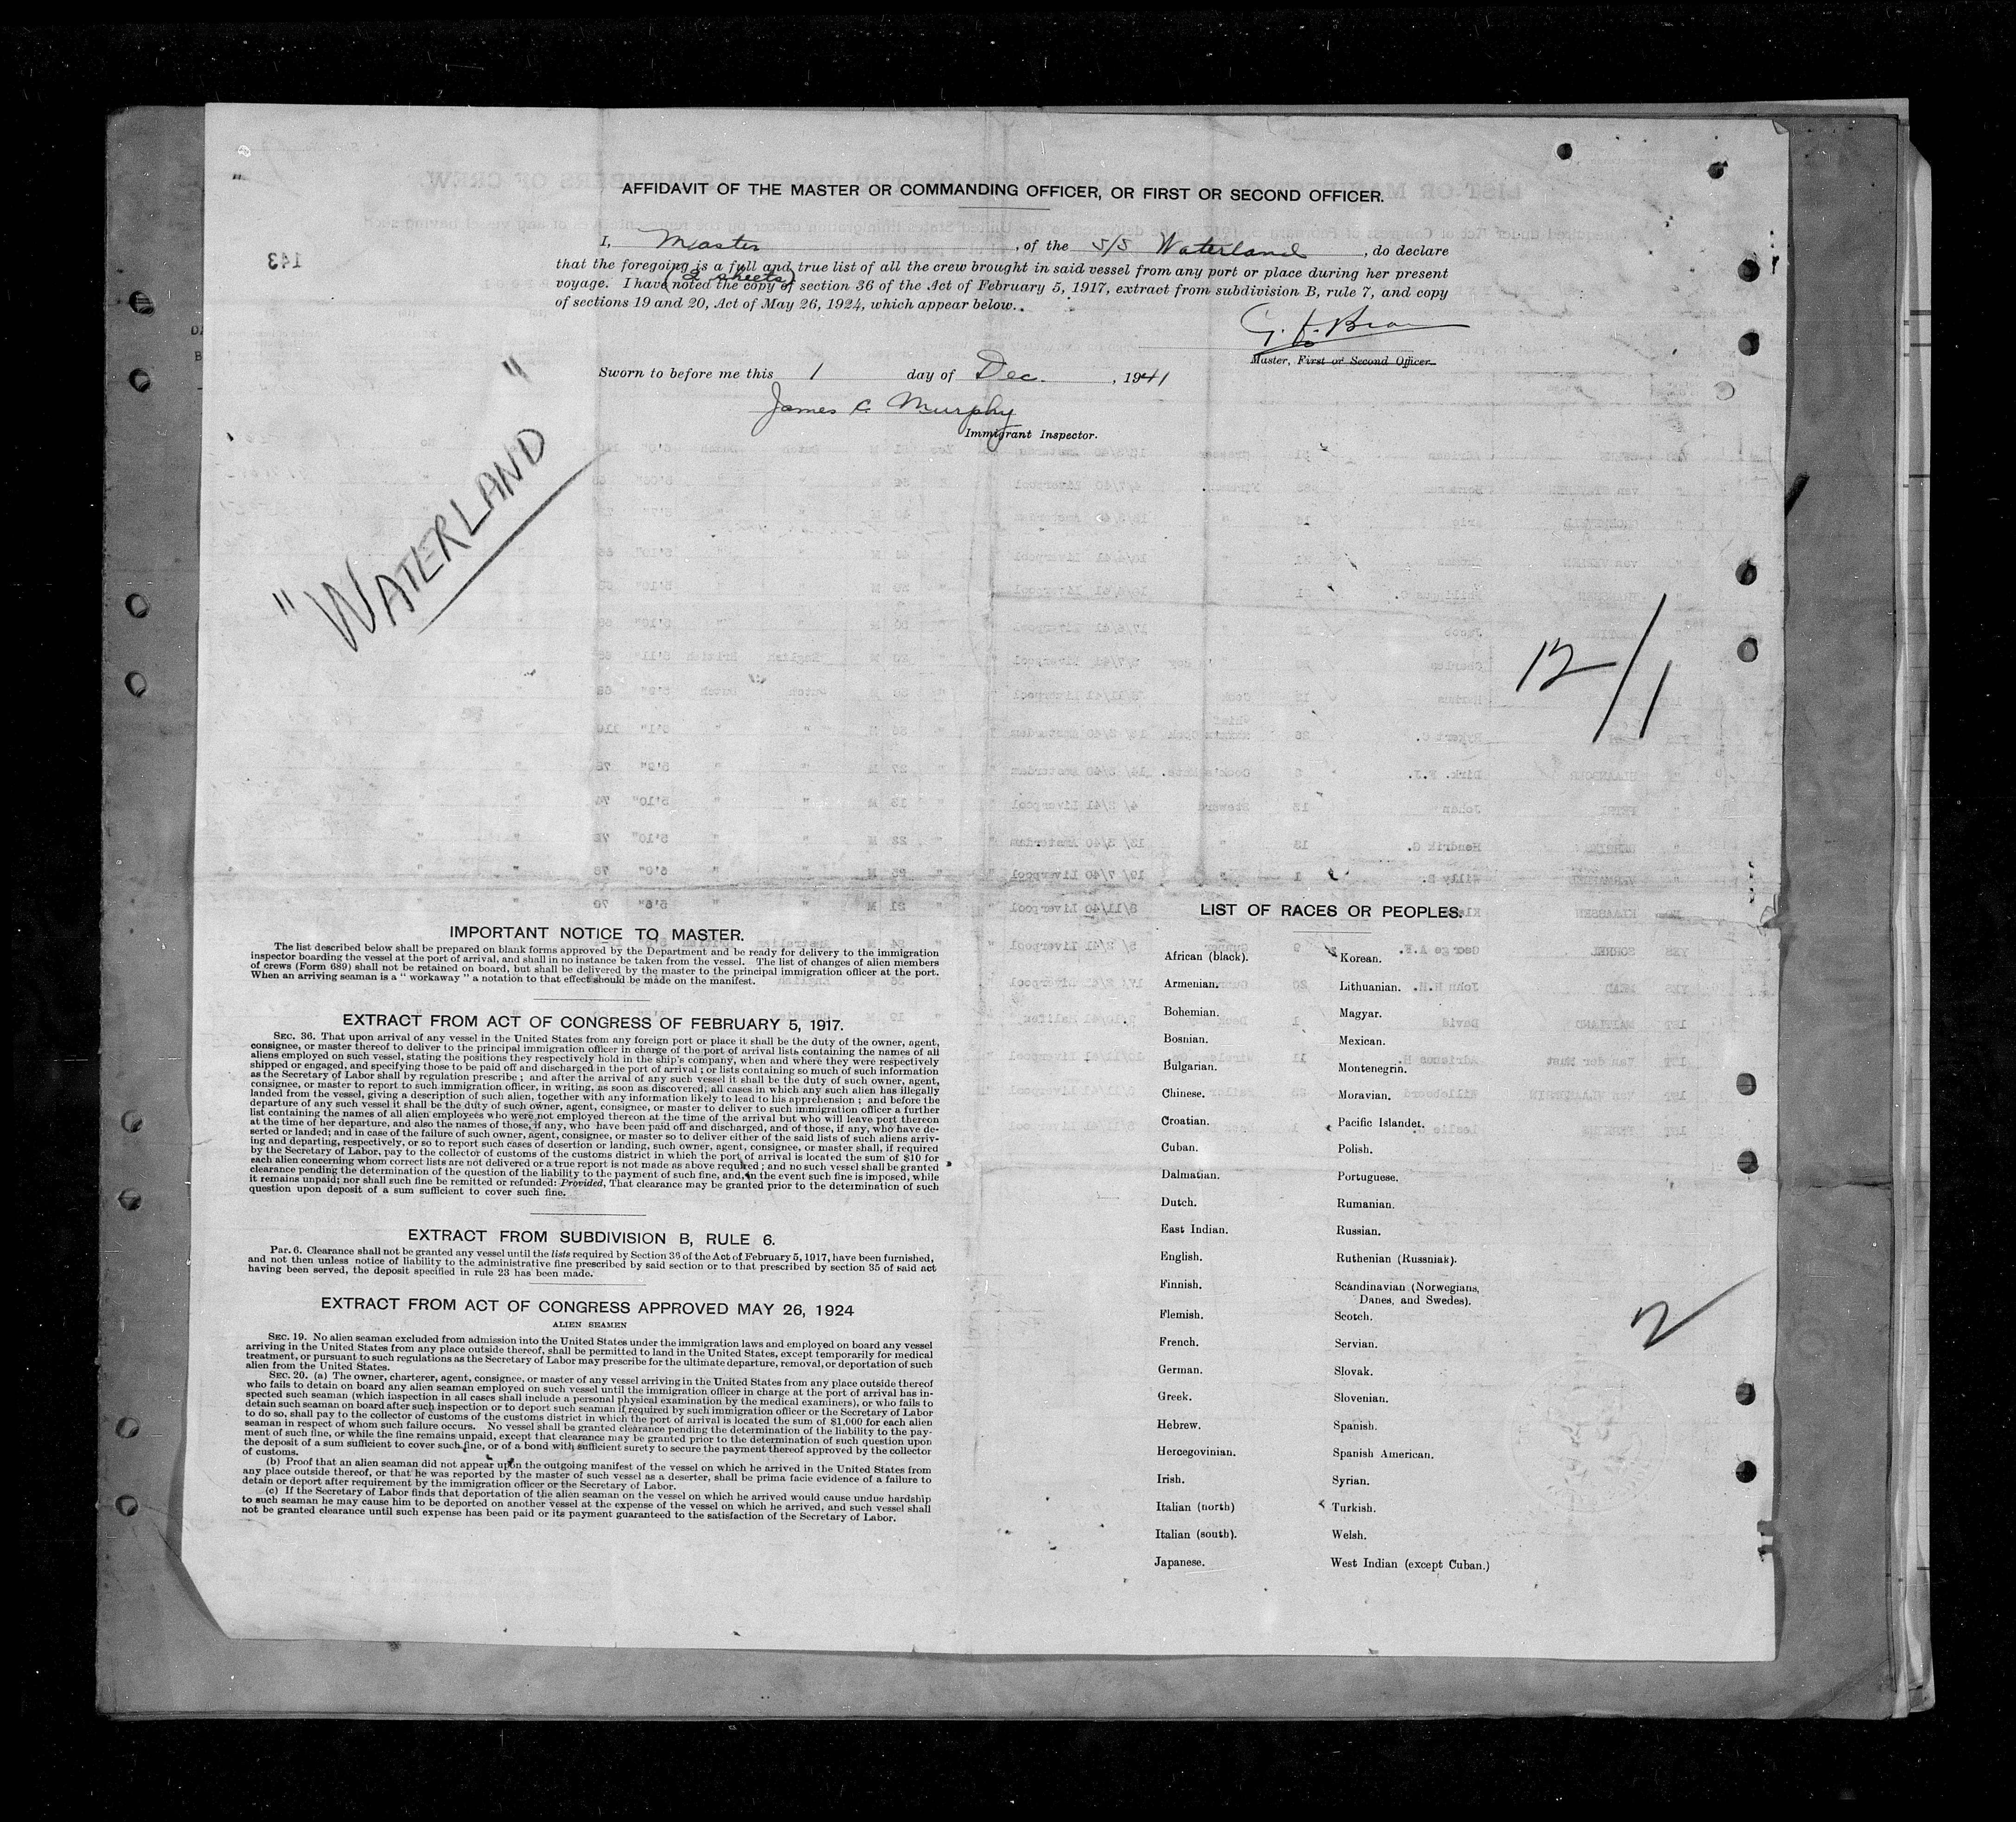 AFFIDAVIT OF THE MASTER OR COMMANDING OFFICER, OR FIRST OR SECOND OFFICER.
I, Master, of the S/S Waterland, do declare
that the foregoing is a full and true list of all the crew brought in said vessel from any port or place during her present
(2 sheets)
voyage. I have noted the copy of section 36 of the Act of February 5, 1917, extract from subdivision B, rule 7, and copy
of sections 19 and 20, Act of May 26, 1924, which appear below.
Master, First or Second Officer.
Sworn to before me this 1 day of Dec., 1941
James C Murphy
Immigrant Inspector.
143
"WATERLAND"
12/1
IMPORTANT NOTICE TO MASTER.
The list described below shall be prepared on blank forms approved by the Department and be ready for delivery to the immigration
inspector boarding the vessel at the port of arrival, and shall in no instance be taken from the vessel. The list of changes of alien members
of crews (Form 689) shall not be retained on board, but shall be delivered by the master to the principal immigration officer at the port.
When an arriving seaman is a "workaway" a notation to that effect should be made on the manifest.
EXTRACT FROM ACT OF CONGRESS OF FEBRUARY 5, 1917.
SEC. 36. That upon arrival of any vessel in the United States from any foreign port or place it shall be the duty of the owner, agent,
consignee, or master thereof to deliver to the principal immigration officer in charge of the port of arrival lists containing the names of all
aliens employed on such vessel, stating the positions they respectively hold in the ship's company, when and where they were respectively
shipped or engaged, and specifying those to be paid off and discharged in the port of arrival; or lists containing so much of such information
as the Secretary of Labor shall by regulation prescribe; and after the arrival of any such vessel it shall be the duty of such owner, agent,
consignee, or master to report to such immigration officer, in writing, as soon as discovered, all cases in which any such alien has illegally
landed from the vessel, giving a description of such alien, together with any information likely to lead to his apprehension; and before the
departure of any such vessel it shall be the duty of such owner, agent, consignee, or master to deliver to such immigration officer a further
list containing the names of all alien employees who were not employed thereon at the time of the arrival but who will leave port thereon
at the time of her departure, and also the names of those, if any, who have been paid off and discharged, and of those, if any, who have de-
serted or landed; and in case of the failure of such owner, agent, consignee, or master so to deliver either of the said lists of such aliens arriv-
ing and departing, respectively, or so to report such cases of desertion or landing, such owner, agent, consignee, or master shall, if required
by the Secretary of Labor, pay to the collector of customs of the customs district in which the port of arrival is located the sum of $10 for
each alien concerning whom correct lists are not delivered or a true report is not made as above required; and no such vessel shall be granted
clearance pending the determination of the question of the liability to the payment of such fine, and, in the event such fine is imposed, while
it remains unpaid; nor shall such fine be remitted or refunded: Provided, That clearance may be granted prior to the determination of such
question upon deposit of a sum sufficient to cover such fine.
EXTRACT FROM SUBDIVISION B, RULE 6.
Par. 6. Clearance shall not be granted any vessel until the lists required by Section 36 of the Act of February 5, 1917, have been furnished,
and not then unless notice of liability to the administrative fine prescribed by said section or to that prescribed by section 35 of said act
having been served, the deposit specified in rule 23 has been made.
EXTRACT FROM ACT OF CONGRESS APPROVED MAY 26, 1924
ALIEN SEAMEN
SEC. 19. No alien seaman excluded from admission into the United States under the immigration laws and employed on board any vessel
arriving in the United States from any place outside thereof, shall be permitted to land in the United States, except temporarily for medical
treatment, or pursuant to such regulations as the Secretary of Labor may prescribe for the ultimate departure, removal, or deportation of such
alien from the United States.
SEC. 20. (a) The owner, charterer, agent, consignee, or master of any vessel arriving in the United States from any place outside thereof
who fails to detain on board any alien seaman employed on such vessel until the immigration officer in charge at the port of arrival has in-
spected such seaman (which inspection in all cases shall include a personal physical examination by the medical examiners), or who fails to
detain such seaman on board after such inspection or to deport such seaman if required by such immigration officer or the Secretary of Labor
to do so, shall pay to the collector of customs of the customs district in which the port of arrival is located the sum of $1,000 for each alien
seaman in respect of whom such failure occurs. No vessel shall be granted clearance pending the determination of the liability to the pay-
ment of such fine, or while the fine remains unpaid, except that clearance may be granted prior to the determination of such question upon
the deposit of a sum sufficient to cover such fine, or of a bond with sufficient surety to secure the payment thereof approved by the collector
of customs.
(b) Proof that an alien seaman did not appear upon the outgoing manifest of the vessel on which he arrived in the United States from
any place outside thereof, or that he was reported by the master of such vessel as a deserter, shall be prima facie evidence of a failure to
detain or deport after requirement by the immigration officer or the Secretary of Labor.
(c) If the Secretary of Labor finds that deportation of the alien seaman on the vessel on which he arrived would cause undue hardship
to such seaman he may cause him to be deported on another vessel at the expense of the vessel on which he arrived, and such vessel shall
not be granted clearance until such expense has been paid or its payment guaranteed to the satisfaction of the Secretary of Labor.
LIST OF RACES OR PEOPLES.
African (black).
Armenian.
Bohemian.
Bosnian.
Bulgarian.
Chinese.
Croatian.
Cuban.
Dalmatian.
Dutch.
East Indian.
English.
Finnish.
Flemish.
French.
German.
Greek.
Hebrew.
Hercegovinian.
Irish.
Italian (north)
Italian (south).
Japanese.
Korean.
Lithuanian.
Magyar.
Mexican.
Montenegrin.
Moravian.
Pacific Islander.
Polish.
Portuguese.
Rumanian.
Russian.
Ruthenian (Russniak).
Scandinavian (Norwegians,
Danes, and Swedes).
Scotch.
Servian.
Slovak.
Slovenian.
Spanish.
Spanish American.
Syrian.
Turkish.
Welsh.
West Indian (except Cuban.)
2